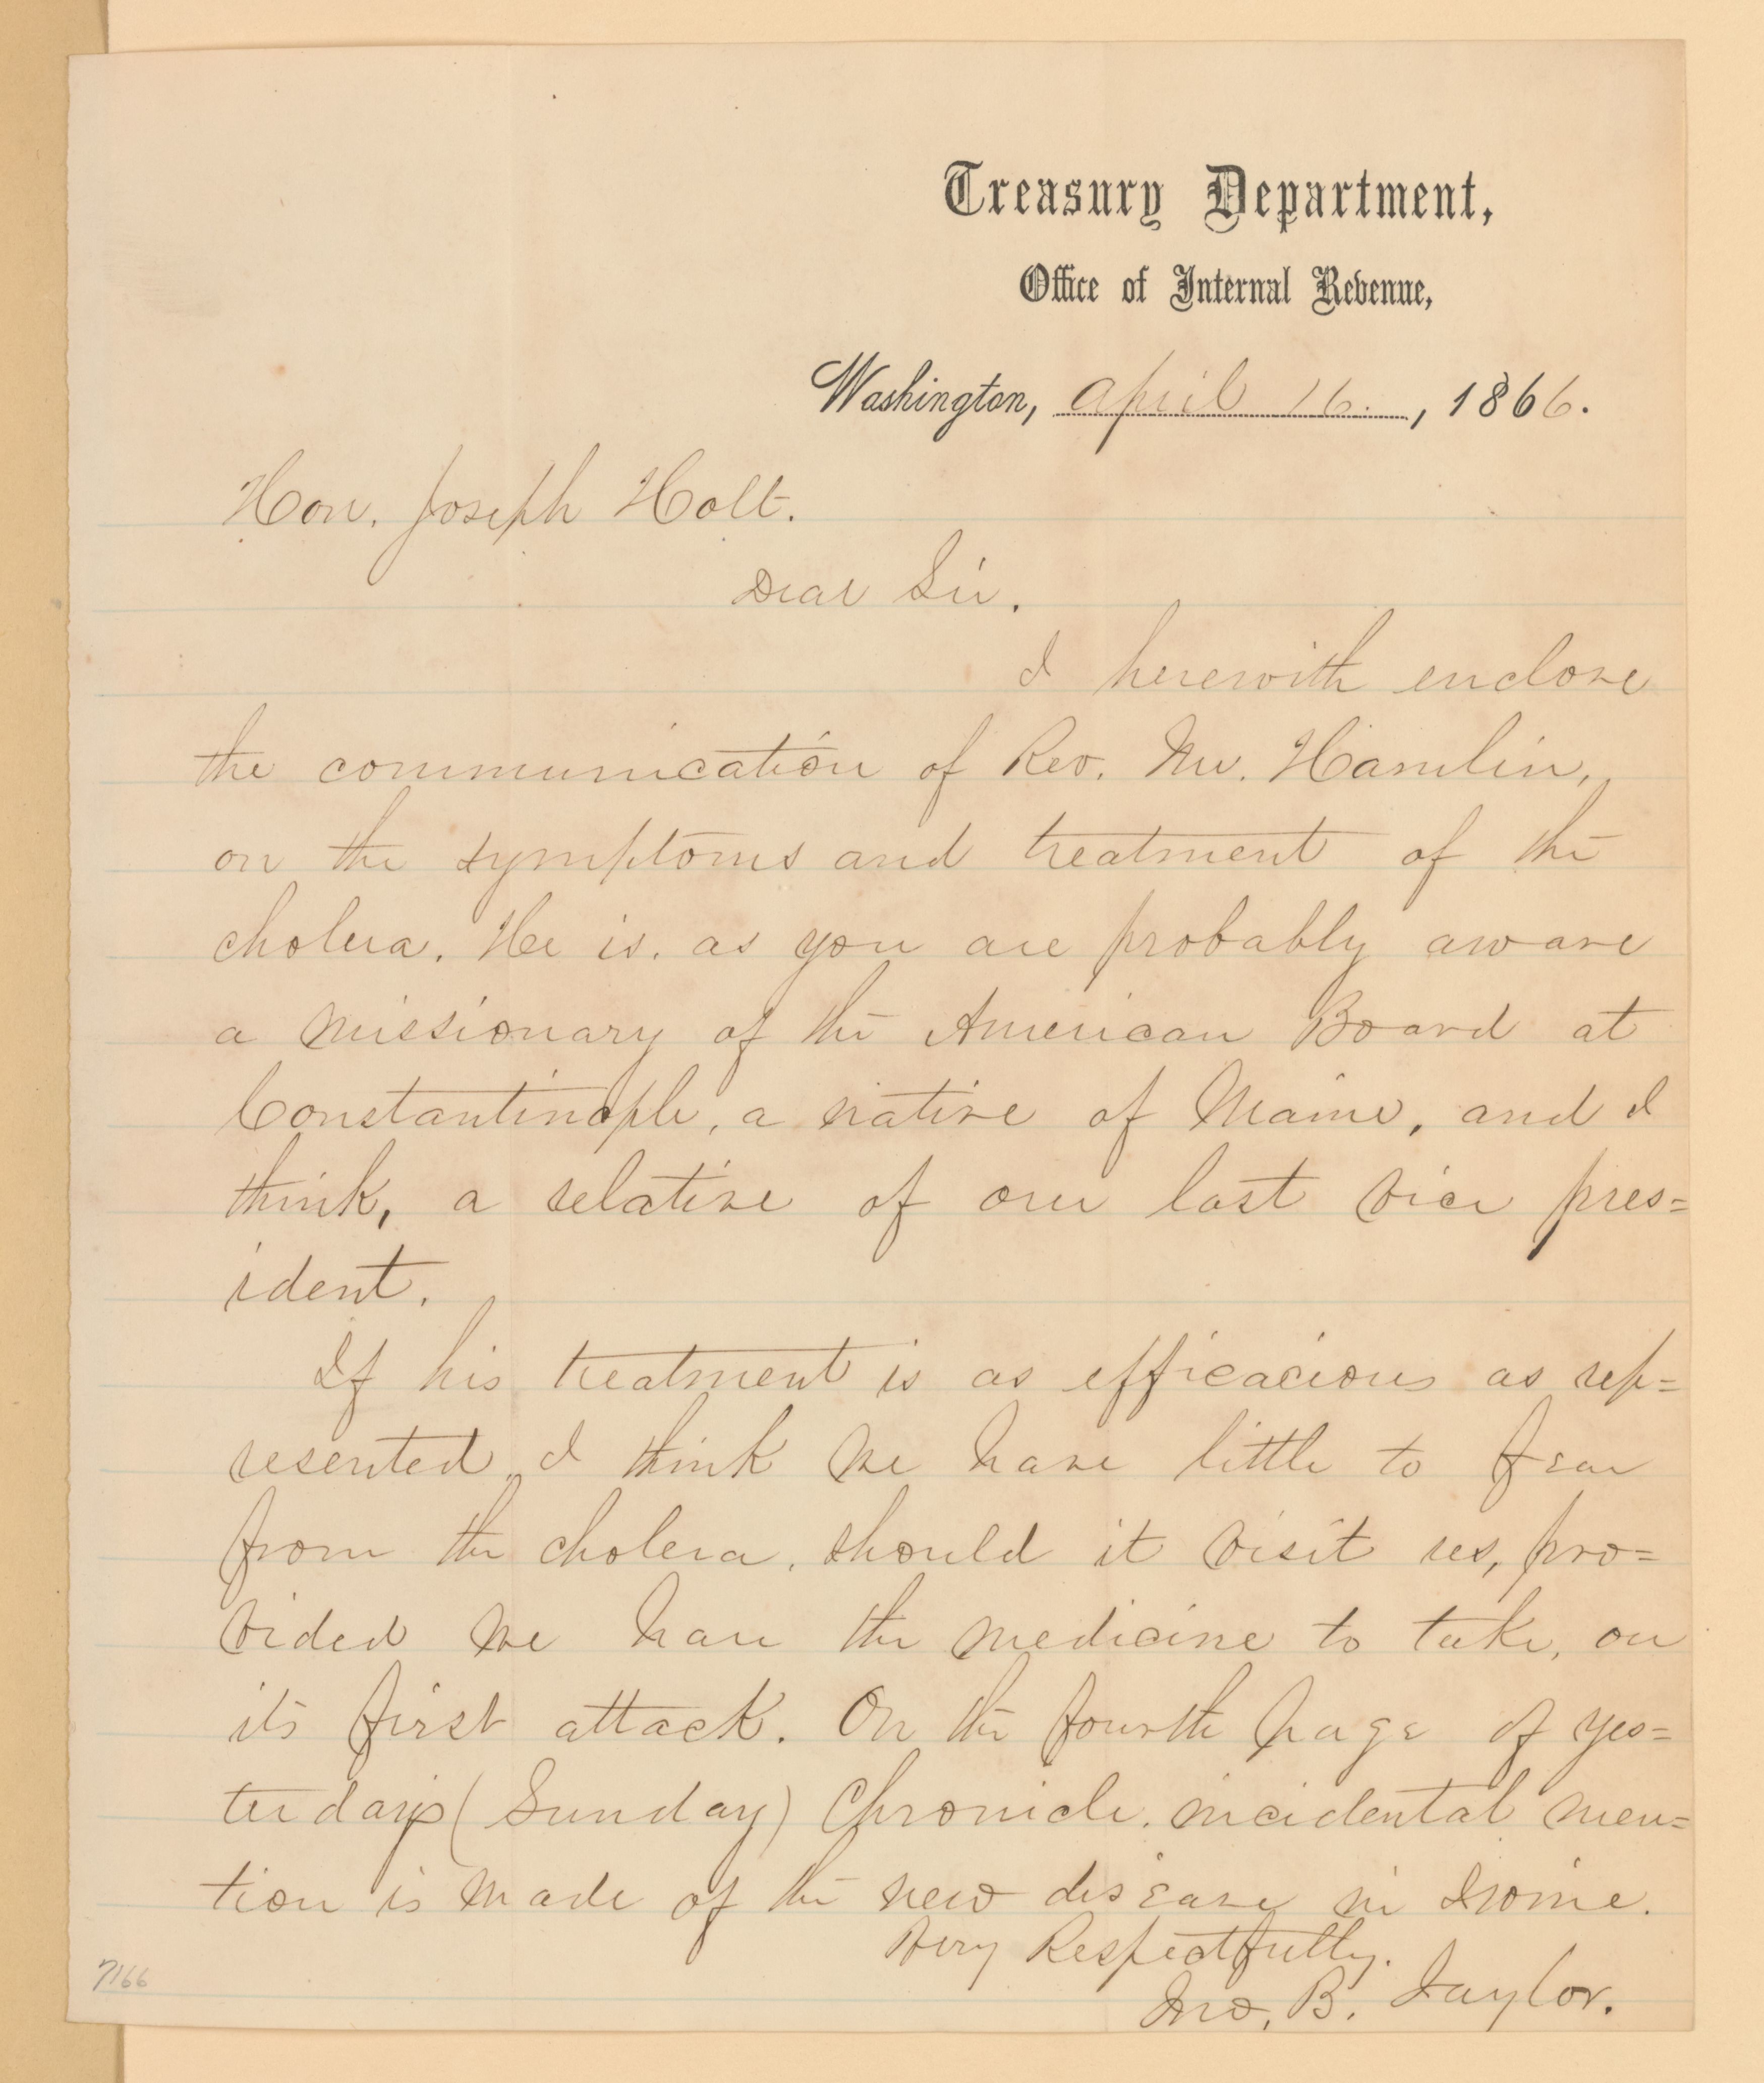 Treasury Department,
Office of Internal Revenue,
Washington, April 16. , 1866.
Hon. Joseph Holt.
Dear Sir.
I herewith enclose
the communication of Rev. Mr. Hamlin,
on the symptoms and treatment of the
cholera. He is. as you are probably aware
a missionary of the American Board at
Constantinople, a native of Maine, and I
think, a relative of our last vice pres=
ident.
If his treatment is as efficacious as rep=
resented, I think we have little to fear
from the cholera, should it visit us, pro=
vided we have the medicine to take, on
its first attack. On the fourth page of yes=
terday's (Sunday) Chronicle. incidental men=
tion is made of the new disease in swine.
Very Respectfully.
Jno. B. Taylor.
7166